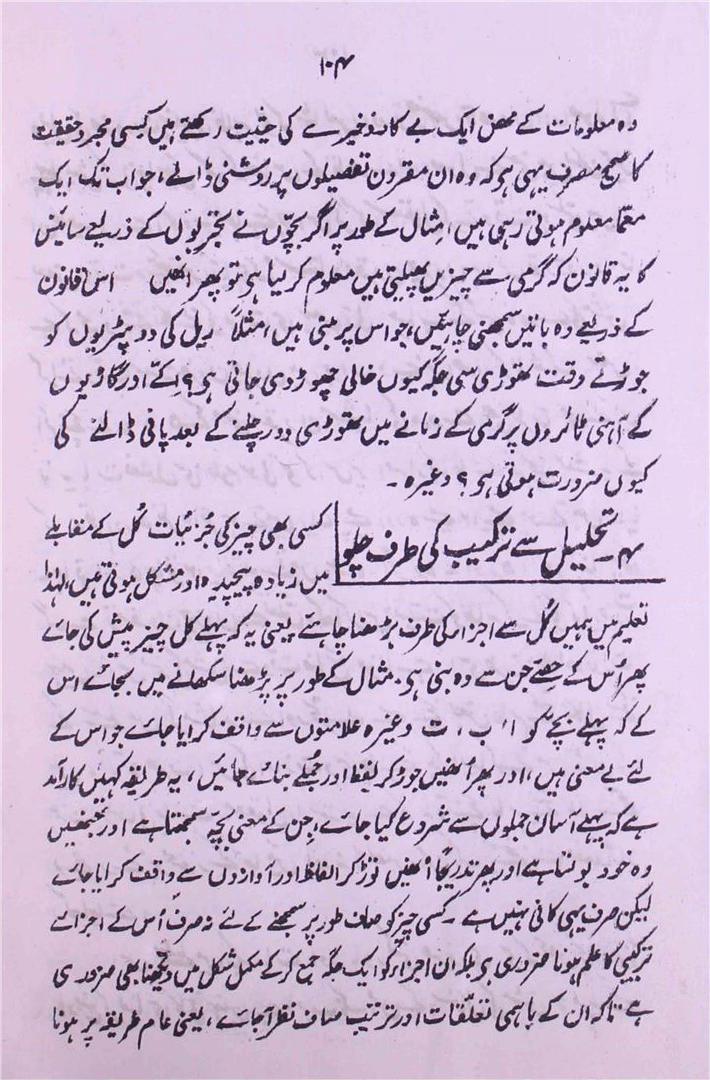 ۱۰۴
وہ معلومات کے محض ایک بے کار ذخیرے کی حیثیت رکھتے ہیں کسی مجرد حقیقت
کا صحیح مصرف یہی ہو کہ وہ ان مقرون تفصیلوں پر روشنی ڈالے، جو اب تک ایک
معمّا معلوم ہوتی رہی ہیں، مثال کے طور پر اگر بچّوں نے تجربوں کے ذریعے سائنس
کا یہ قانون کہ گرمی سے چیزیں پھیلتی ہیں معلوم کر لیا ہو تو پھر انھیں اس قانون
کے ذریعے وہ باتیں سمجھنی چاہئیں، جو اس پر مبنی ہیں، مثلاً ریل کی دو پٹریوں کو
جوڑتے وقت تھوڑی سی جگہ کیوں خالی چھوڑ دی جاتی ہو؟ اِکّے اور گاڑیوں
کے آہنی ٹائروں پر گرمی کے زمانے میں تھوڑی دور چلنے کے بعد پانی ڈالنے کی
کیوں ضرورت ہوتی ہو؟ وغیرہ ۔
۴۔ تحلیل سے ترکیب کی طرف چلو
کسی بھی چیز کی جُزئیات کُل کے مقابلے
میں زیادہ پیچیدہ اور مشکل ہوتی ہیں، لہٰذا
تعلیم میں ہمیں کُل سے اجزاء کی طرف بڑھنا چاہئے یعنی یہ کہ پہلے کل چیز پیش کی جائے
پھر اُس کے حصّے جن سے وہ بنی ہو۔ مثال کے طور پر پڑھنا سکھانے میں بجائے اس
کے کہ پہلے بچے کو ا، ب، ت وغیرہ علامتوں سے واقف کرایا جائے جو اس کے
لئے بے معنی ہیں، اور پھر اُنھیں جوڑ کر لفظ اور جُملے بنائے جائیں، یہ طریقہ کہیں کارآمد
ہے کہ پہلے آسان جملوں سے شروع کیا جائے، جن کے معنی بچّہ سمجھتا ہے اور جنھیں
وہ خود بولتا ہے اور پھر تدریجاً اُنھیں توڑ کر الفاظ اور آوازوں سے واقف کرایا جائے
لیکن صرف یہی کافی نہیں ہے۔ کسی چیز کو صاف طور پر سمجھنے کے لئے نہ صرف اُس کے اجزائے
ترکیبی کا علم ہونا ضروری ہو بلکہ ان اجزاء کو ایک جگہ جمع کر کے مکمل شکل میں دیکھنا بھی ضروری
ہے تاکہ ان کے باہمی تعلّقات اور ترتیب صاف نظر آجائے، یعنی عام طریقہ پر ہونا